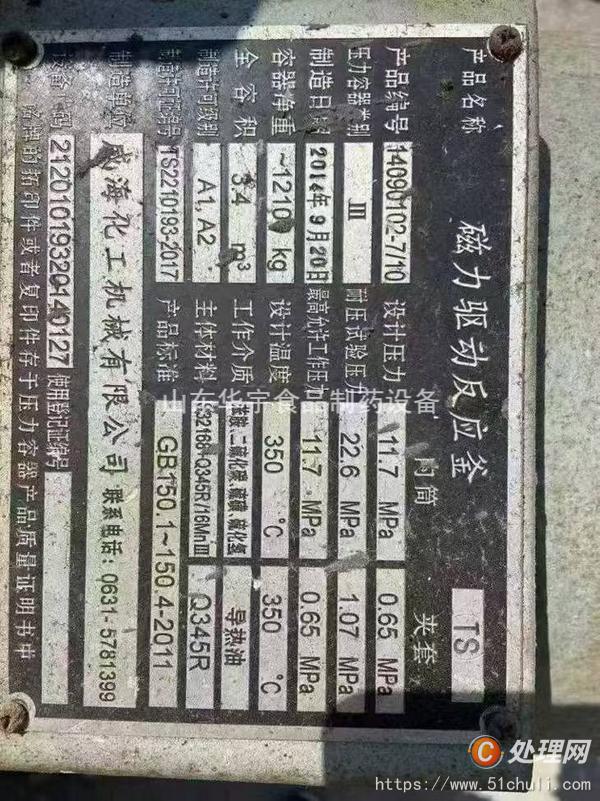 产品名称 磁力驱动反应釜 TS
内筒 夹套
产品编号 14090102-7/10 设计压力 11.7 MPa 0.65 MPa
压力容器类别 III 耐压试验压力 22.6 MPa 1.07 MPa
制造日期 2014年9月20日 最高允许工作压力 11.7 MPa 0.65 MPa
容器净重 ~1210 kg 设计温度 350 ℃ 350 ℃
全容积 3.4 m³ 工作介质 苯胺、二硫化碳、硫磺、硫化氢 导热油
制造许可级别 A1, A2 主体材料 S32168+Q345R/16MnIII Q345R
制造许可证编号 TS2210193-2017 产品标准 GB150.1~150.4-2011
制造单位 威海化工机械有限公司 联系电话: 0631-5781399
设备代码 21201019320140127 使用登记证编号
铭牌的拓印件或者复印件存于压力容器产品质量证明书中
山东华宇食品制药设备
C处理网
https://www.51chuli.com